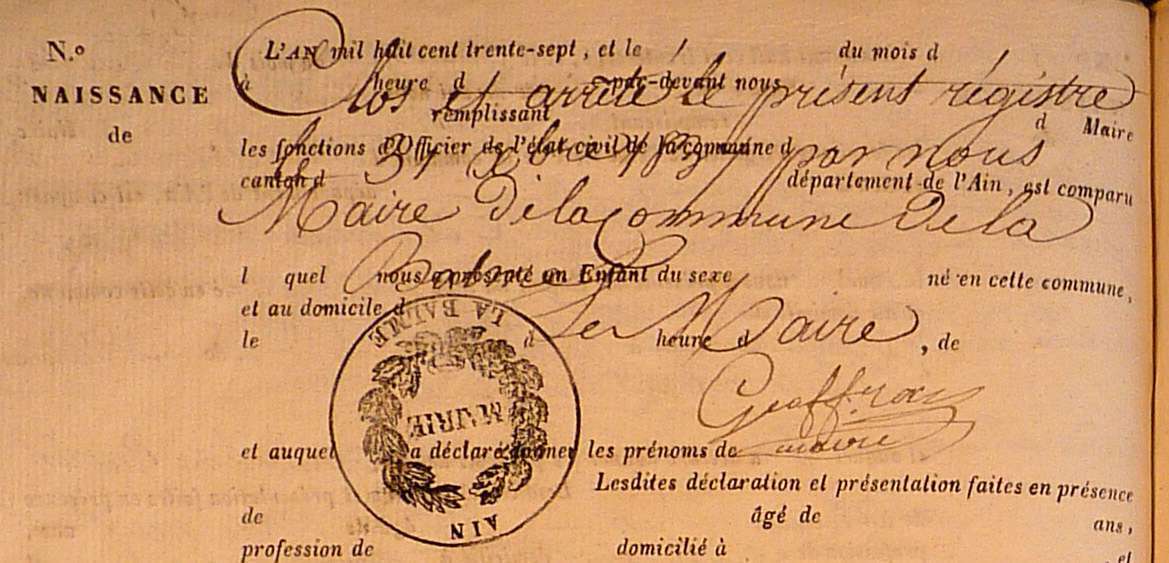 N.o
NAISSANCE
de
L'AN mil huit cent trente-sept, et le du mois d
à heure d par-devant nous
Clos et arrêté le présent régistre
remplissant
d Maire
les fonctions d'Officier de l'état civil de la commune d
le 31 Xbre 1837 par nous
canton d département de l'Ain, est comparu
Maire De la commune De la
l quel nous a présenté un Enfant du sexe né en cette commune,
Balme
et au domicile d
Le Maire
le d heure d , de
LA BALME
MAIRIE
AIN
Geoffray
maire
et auquel a déclaré donner les prénoms de
Lesdites déclaration et présentation faites en présence
de âgé de ans,
profession de domicilié à , et